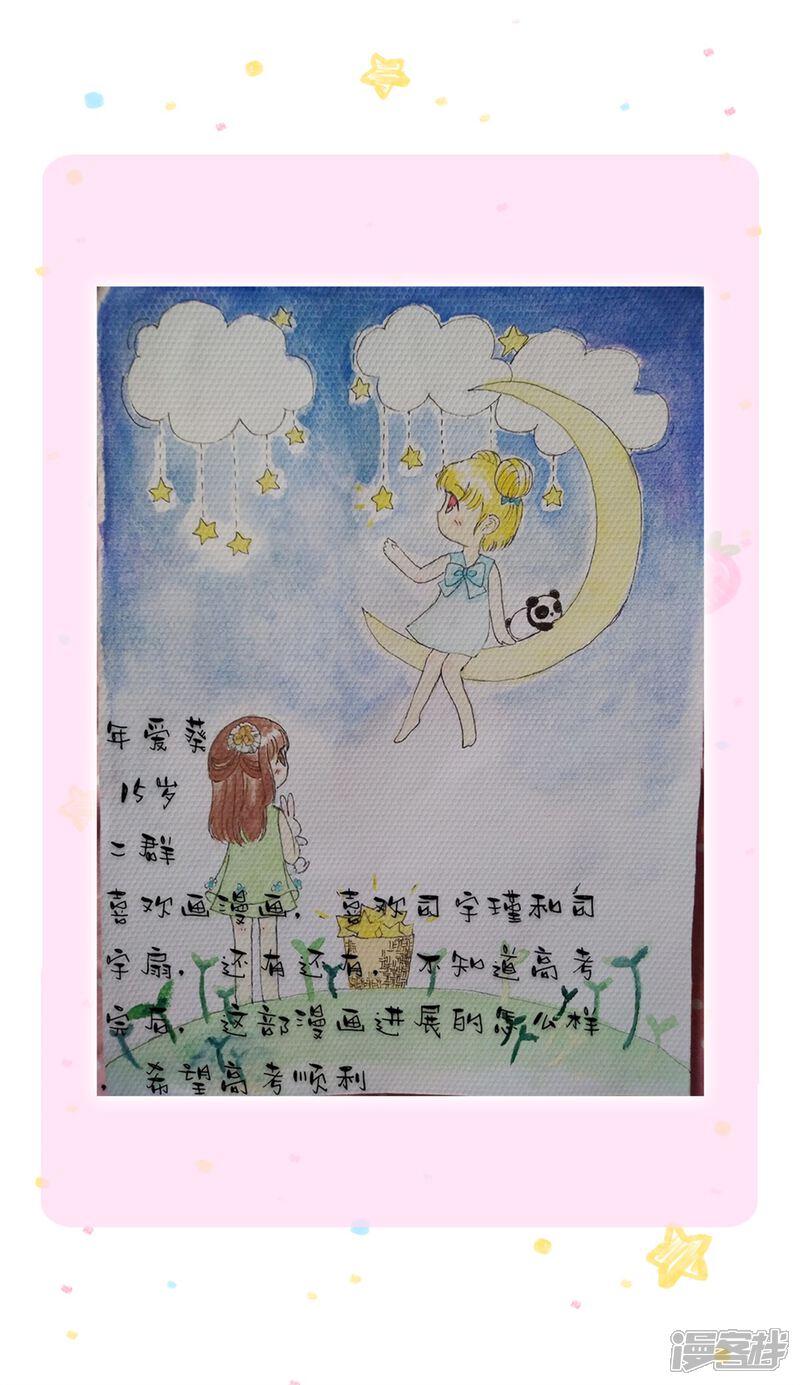 年爱葵
15岁
二群
喜欢画漫画，喜欢司宇瑾和司
宇扇，还有还有，不知道高考
完后，这部漫画进展的怎么样
，希望高考顺利
漫客栈